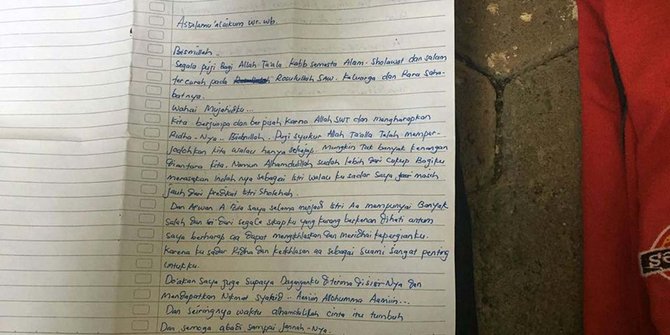 Assalamu'alaikum wr. wb.
Bismillah.
Segala puji Bagi Allah Ta'ala Rabb semesta Alam. Sholawat dan salam
tercurah pada Rosulullah SAW. Keluarga dan Para Saha-
batnya.
Wahai Mujahidku...
Kita berjumpa dan berpisah karena Allah SWT dan mengharapkan
Ridha-Nya.. Biidznillah. Puji syukur Allah Ta'alla Telah memper-
jodohkan kita walau hanya sekejap. Mungkin Tak banyak kenangan
diantara kita, Namun Alhamdulillah sudah lebih dari cukup Bagiku
merasakan indah nya sebagai istri walau ku sadar saya masih
jauh dari predikat istri Sholehah.
Dan saya selama menjadi istri Aa mempunyai Banyak
salah dan dari segala sikapku yang kurang berkenan dihati antum
saya berharap aa dapat mengikhlaskan dan meridhai kepergianku.
Karena ku sadar Ridha dan keikhlasan aa sebagai suami sangat penting
untukku.
Do'akan saya juga supaya Daganganku diterma disisi-Nya dan
Mendapatkan Nikmat syahid.. Aamiin Allohumma Aamiin...
Dan seiringnya waktu alhamdulillah cinta itu tumbuh
Dan semoga abadi sampai Jannah-Nya.